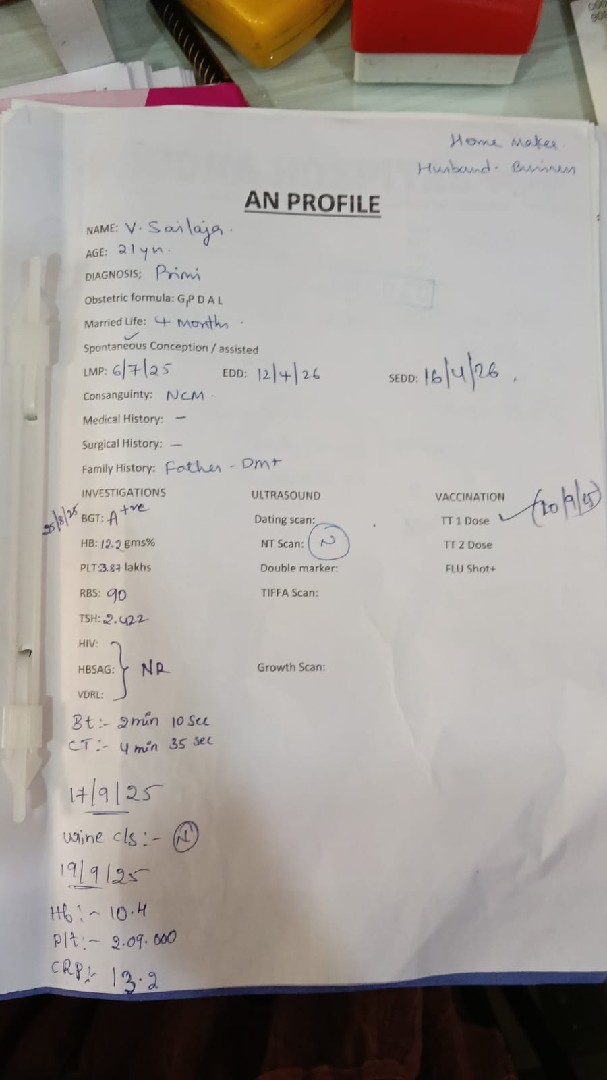 Home Maker.
Husband - Business
AN PROFILE
NAME: V. Sailaja.
AGE: 21 yrs.
DIAGNOSIS; Primi
Obstetric formula: G,P D A L
Married Life: 4 Months.
Spontaneous Conception / assisted
LMP: 6/7/25 EDD: 12/4/26 SEDD: 16/4/26.
Consanguinty: NCM.
Medical History: -
Surgical History: -
Family History: Father - DM+
INVESTIGATIONS ULTRASOUND VACCINATION
BGT: A+ve Dating scan: TT 1 Dose ✓ (20/9/25)
HB: 12.2 gms% NT Scan: N TT 2 Dose
PLT: 3.87 lakhs Double marker: FLU Shot+
RBS: 90 TIFFA Scan:
TSH: 2.422
HIV:
HBSAG: NR Growth Scan:
VDRL:
Bt:- 2 min 10 sec
CT:- 4 min 35 sec
17/9/25
urine c/s:- N
19/9/25
Hb:- 10.4
Plt:- 2.09.000
CRP:- 13.2